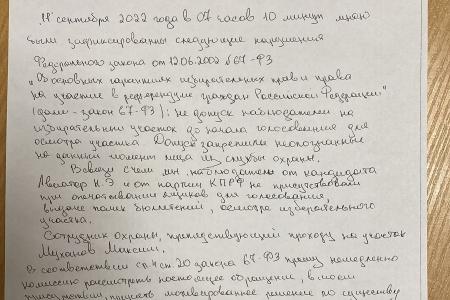 „11" сентября 2022 года в 07 часов 10 минут мною
были зафиксированны следующие нарушения
Федерального закона от 12.06.2002 №67-ФЗ
„Об основных гарантиях избирательных прав и права
на участие в референдуме граждан Российской Федерации"
(далее - закон 67-ФЗ): Не допуск наблюдателей на
избирательный участок до начала голосования для
осмотра участка. Допуск запретили неопознанные
на данный момент лица из службы охраны.
В связи с чем мы, наблюдатели от кандидата
Авиатор К.Э и от партии КПРФ не присутствовали
при опечатывании ящиков для голосования,
выдаче пачек бюллетеней, осмотре избирательного
участка.
Сотрудник охраны, препятствующий проходу на участок
Муханов Максим.
В соответствии с п.4 ст. 20 закона 67-ФЗ прошу немедленно
комиссию рассмотреть настоящее обращение, в моем
присутствии, принять мотивированное решение по существу